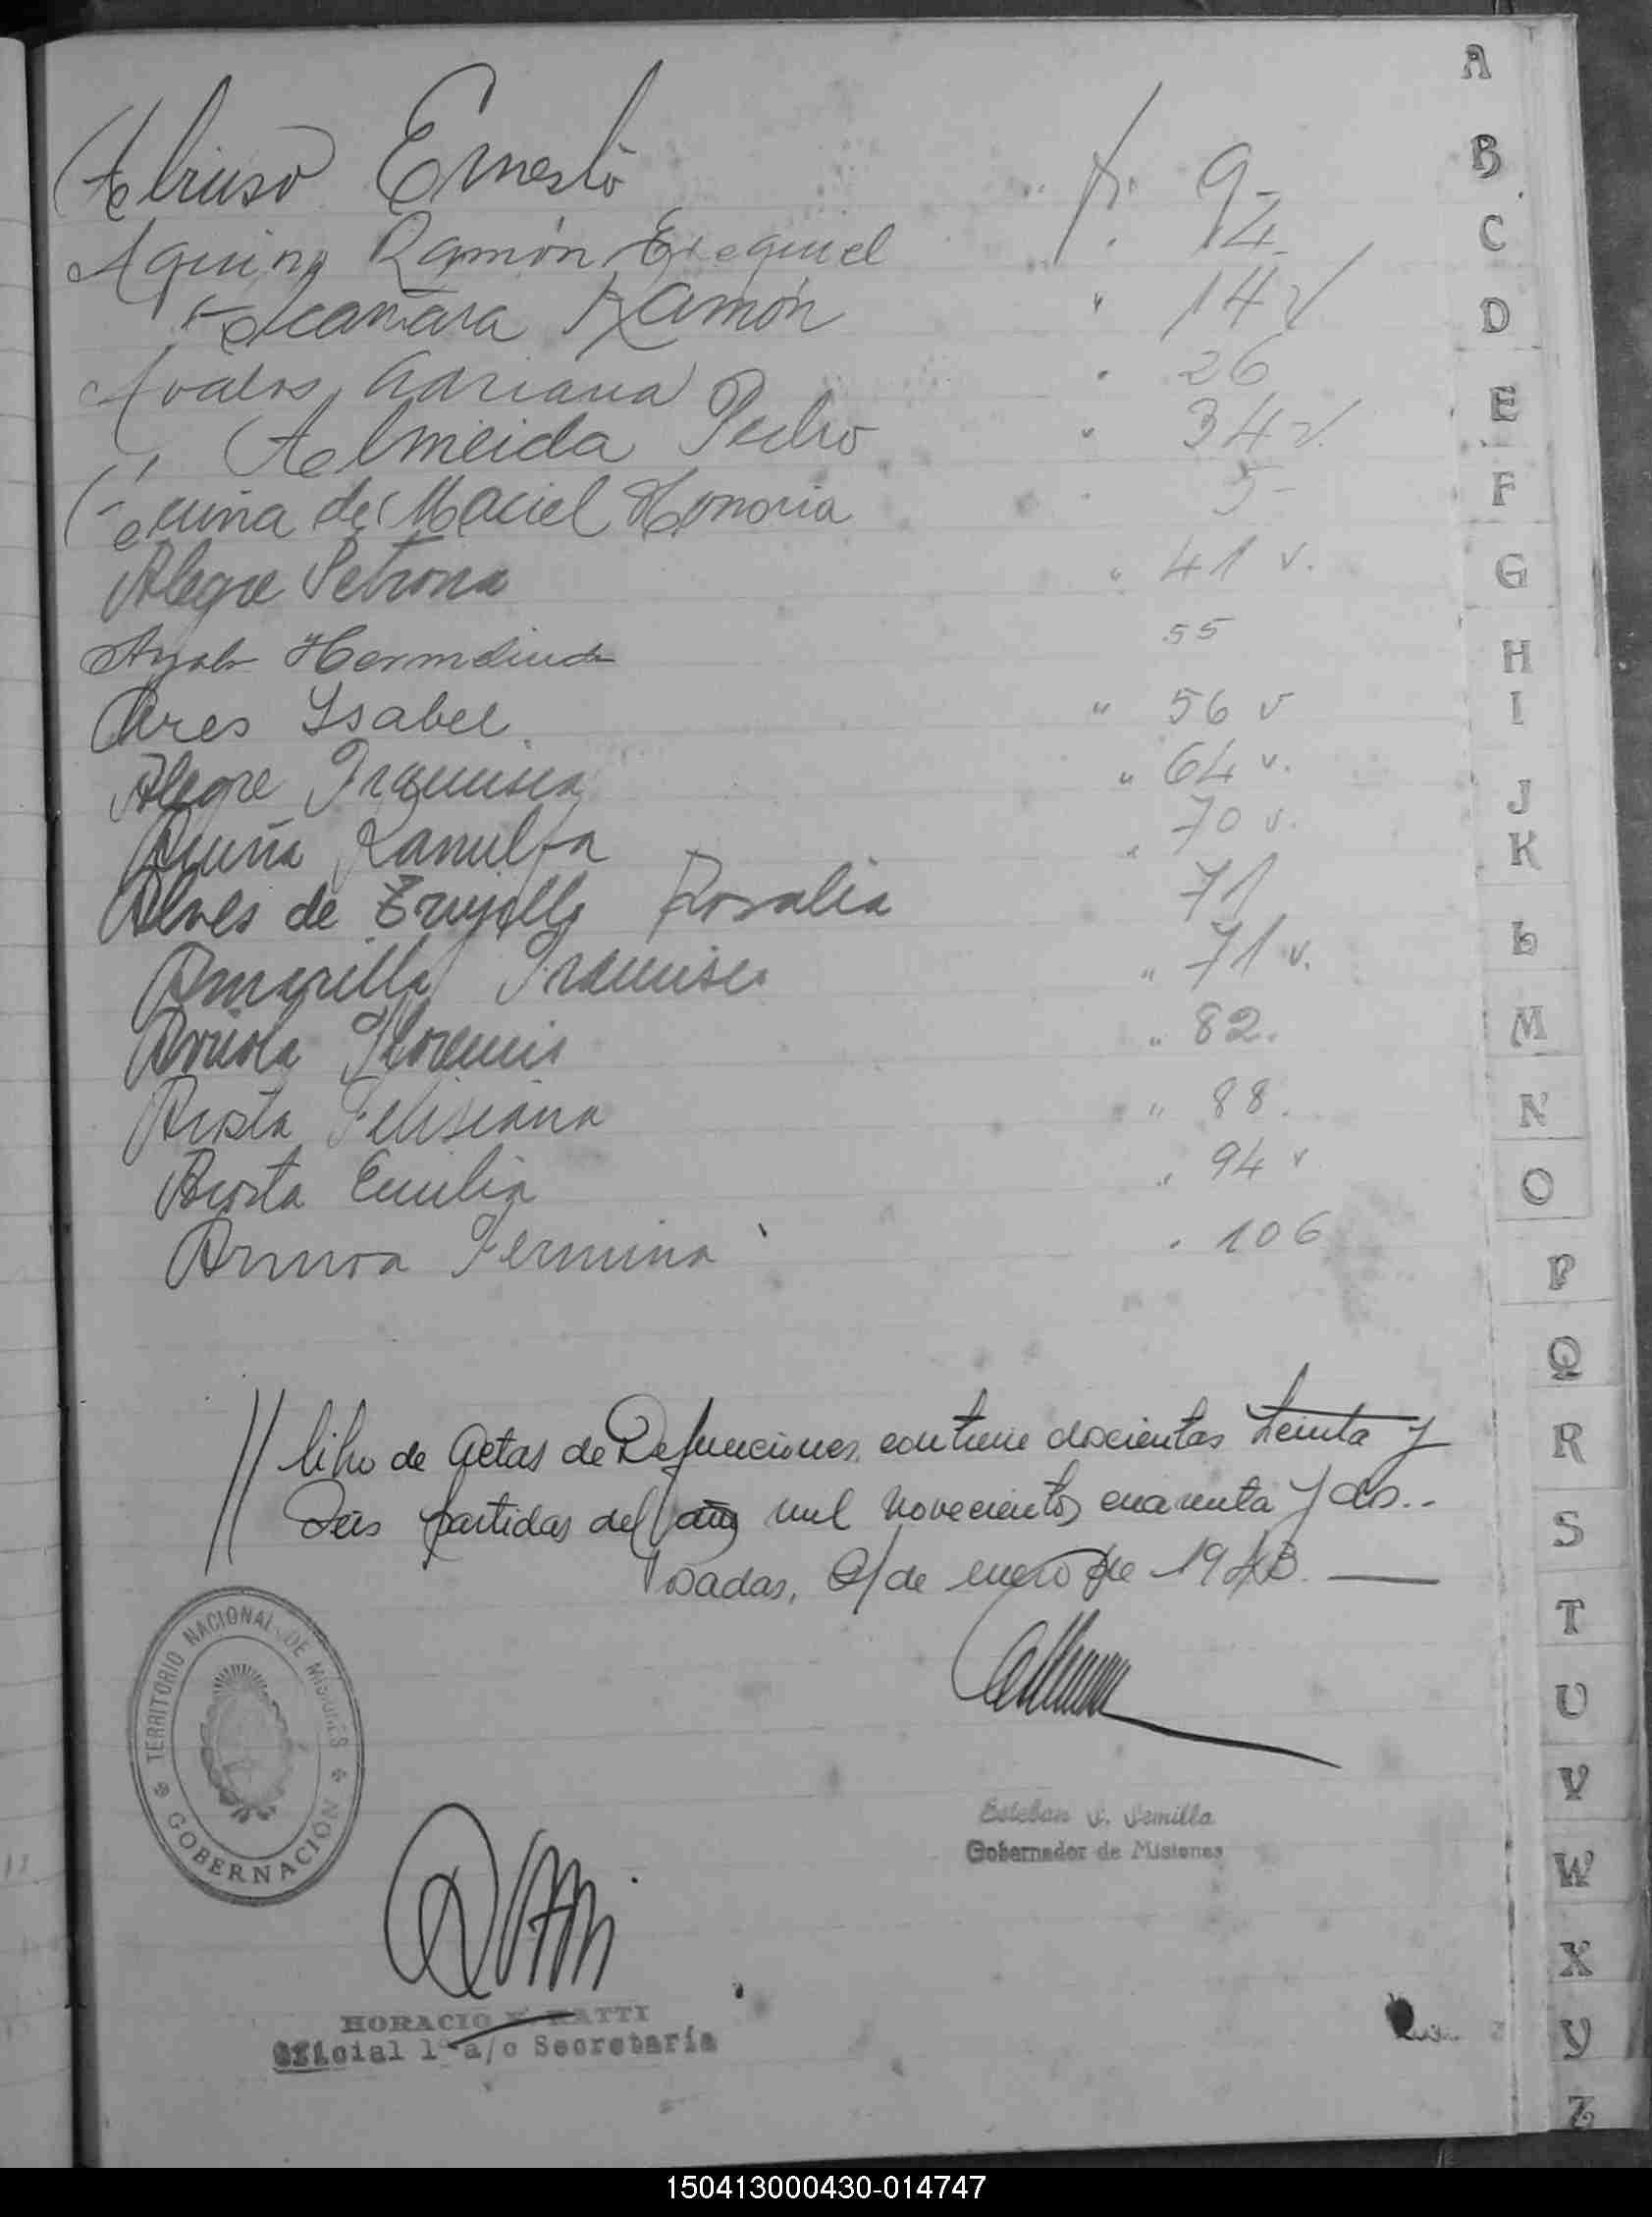 Ernesto f. 9-
Aquino Ramón Exequiel " 12
Alcañara Ramón " 14 v
Avalos Adriana " 26
Almeida Pedro " 34 v.
Acuña de Maciel Honoria " 5-
Alegre Petrona " 41 v.
Ayala Hermelinda 55
Ares Ysabel " 56 v
Alegre Francisca " 64 v.
Acuña Ranulfa " 70 v.
Alves de Trujillo Rosalia 71
Amarilla Francisca " 71 v.
Arriola Florencia " 82.
Acosta Felisiana " 88.
Acosta Emilia " 94 v
Armoa Fermina " 106
// libro de Actas de Defunciones, contiene doscientas treinta y
seis partidas del año mil novecientos cuarenta y dos..
Posadas, de enero de 1943. —
TERRITORIO NACIONAL DE MISIONES
GOBERNACIÓN
Esteban S. Semilla
Gobernador de Misiones
HORACIO RATTI
Oficial 1º a/c Secretaría
A
B
C
D
E
F
G
H
I
J
K
L
M
N
O
P
Q
R
S
T
U
V
W
X
Y
Z
150413000430-014747